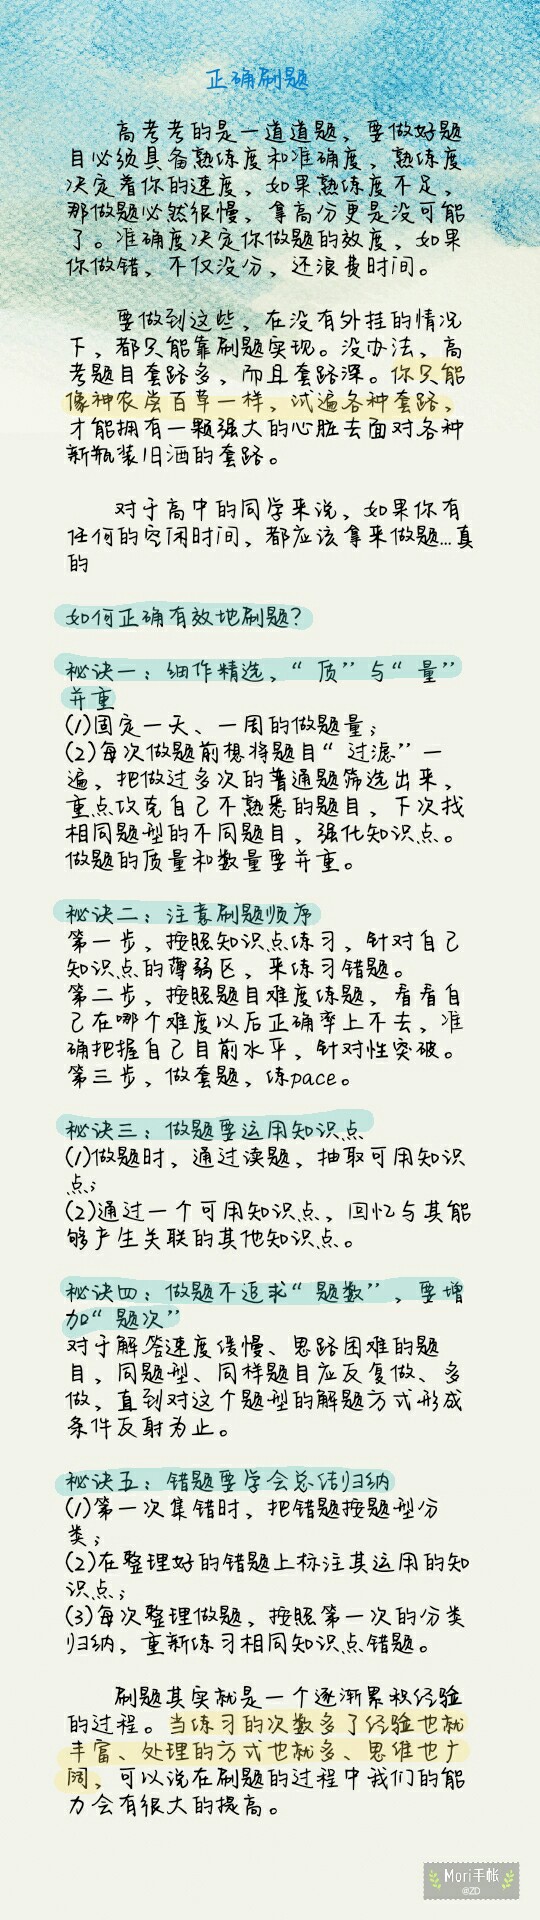 正确刷题
高考考的是一道道题，要做好题
目必须具备熟练度和准确度，熟练度
决定着你的速度，如果熟练度不足，
那做题必然很慢，拿高分更是没可能
了。准确度决定你做题的效度，如果
你做错，不仅没分，还浪费时间。
要做到这些，在没有外挂的情况
下，都只能靠刷题实现。没办法，高
考题目套路多，而且套路深。你只能
像神农尝百草一样，试遍各种套路，
才能拥有一颗强大的心脏去面对各种
新瓶装旧酒的套路。
对于高中的同学来说，如果你有
任何的空闲时间，都应该拿来做题...真
的
如何正确有效地刷题？
秘诀一：细作精选，“质”与“量”
并重
(1)固定一天、一周的做题量；
(2)每次做题前想将题目“过滤”一
遍，把做过多次的普通题筛选出来，
重点攻克自己不熟悉的题目，下次找
相同题型的不同题目，强化知识点。
做题的质量和数量要并重。
秘诀二：注意刷题顺序
第一步，按照知识点练习，针对自己
知识点的薄弱区，来练习错题。
第二步，按照题目难度练题，看看自
己在哪个难度以后正确率上不去，准
确把握自己目前水平，针对性突破。
第三步，做套题，练pace。
秘诀三：做题要运用知识点
(1)做题时，通过读题，抽取可用知识
点；
(2)通过一个可用知识点，回忆与其能
够产生关联的其他知识点。
秘诀四：做题不追求“题数”，要增
加“题次”
对于解答速度缓慢、思路困难的题
目，同题型、同样题目应反复做、多
做，直到对这个题型的解题方式形成
条件反射为止。
秘诀五：错题要学会总结归纳
(1)第一次集错时，把错题按题型分
类；
(2)在整理好的错题上标注其运用的知
识点；
(3)每次整理做题，按照第一次的分类
归纳，重新练习相同知识点错题。
刷题其实就是一个逐渐累积经验
的过程。当练习的次数多了经验也就
丰富、处理的方式也就多、思维也广
阔，可以说在刷题的过程中我们的能
力会有很大的提高。
Mori手帐
@ZD